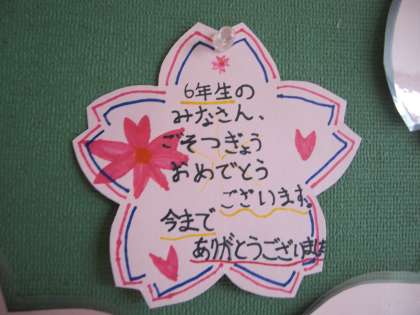 6年生の
みなさん、
ごそつぎょう
おめでとう
ございます。
今まで
ありがとうございました